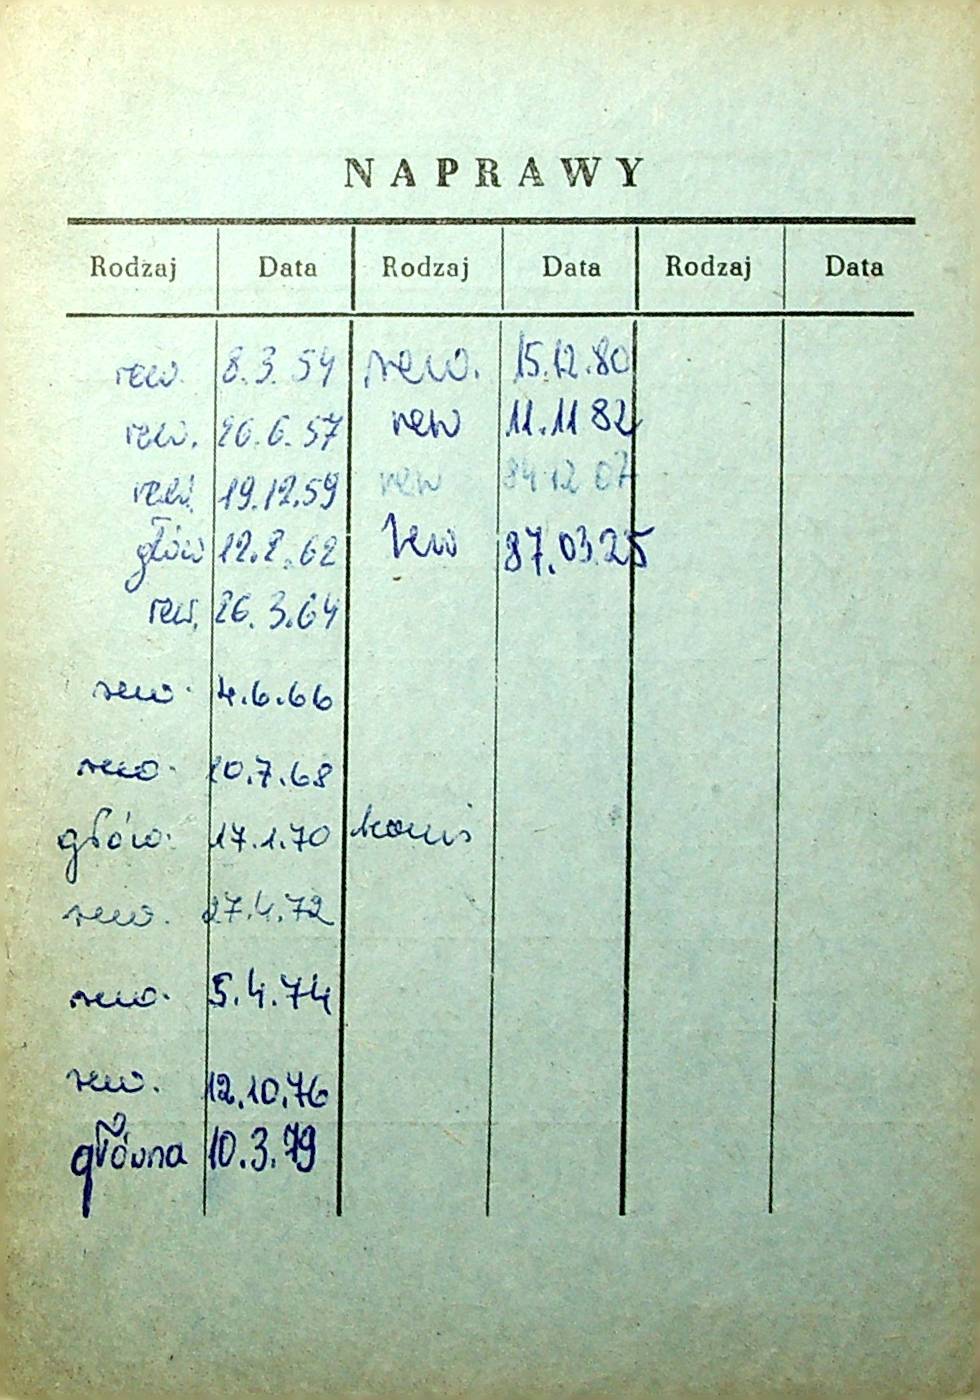 NAPRAWY
Rodzaj Data Rodzaj Data Rodzaj Data
rew. 8.3.54 rew. 15.12.80
rew. 26.6.57 rew 11.11 82
rew. 19.12.59 rew 84 12 07
głów 12.2.62 rew 87.03.25
rew. 26.3.64
rew. 4.6.66
rew. 10.7.68
głów. 17.1.70
rew. 27.4.72
rew. 5.4.74
rew. 12.10.76
główna 10.3.79